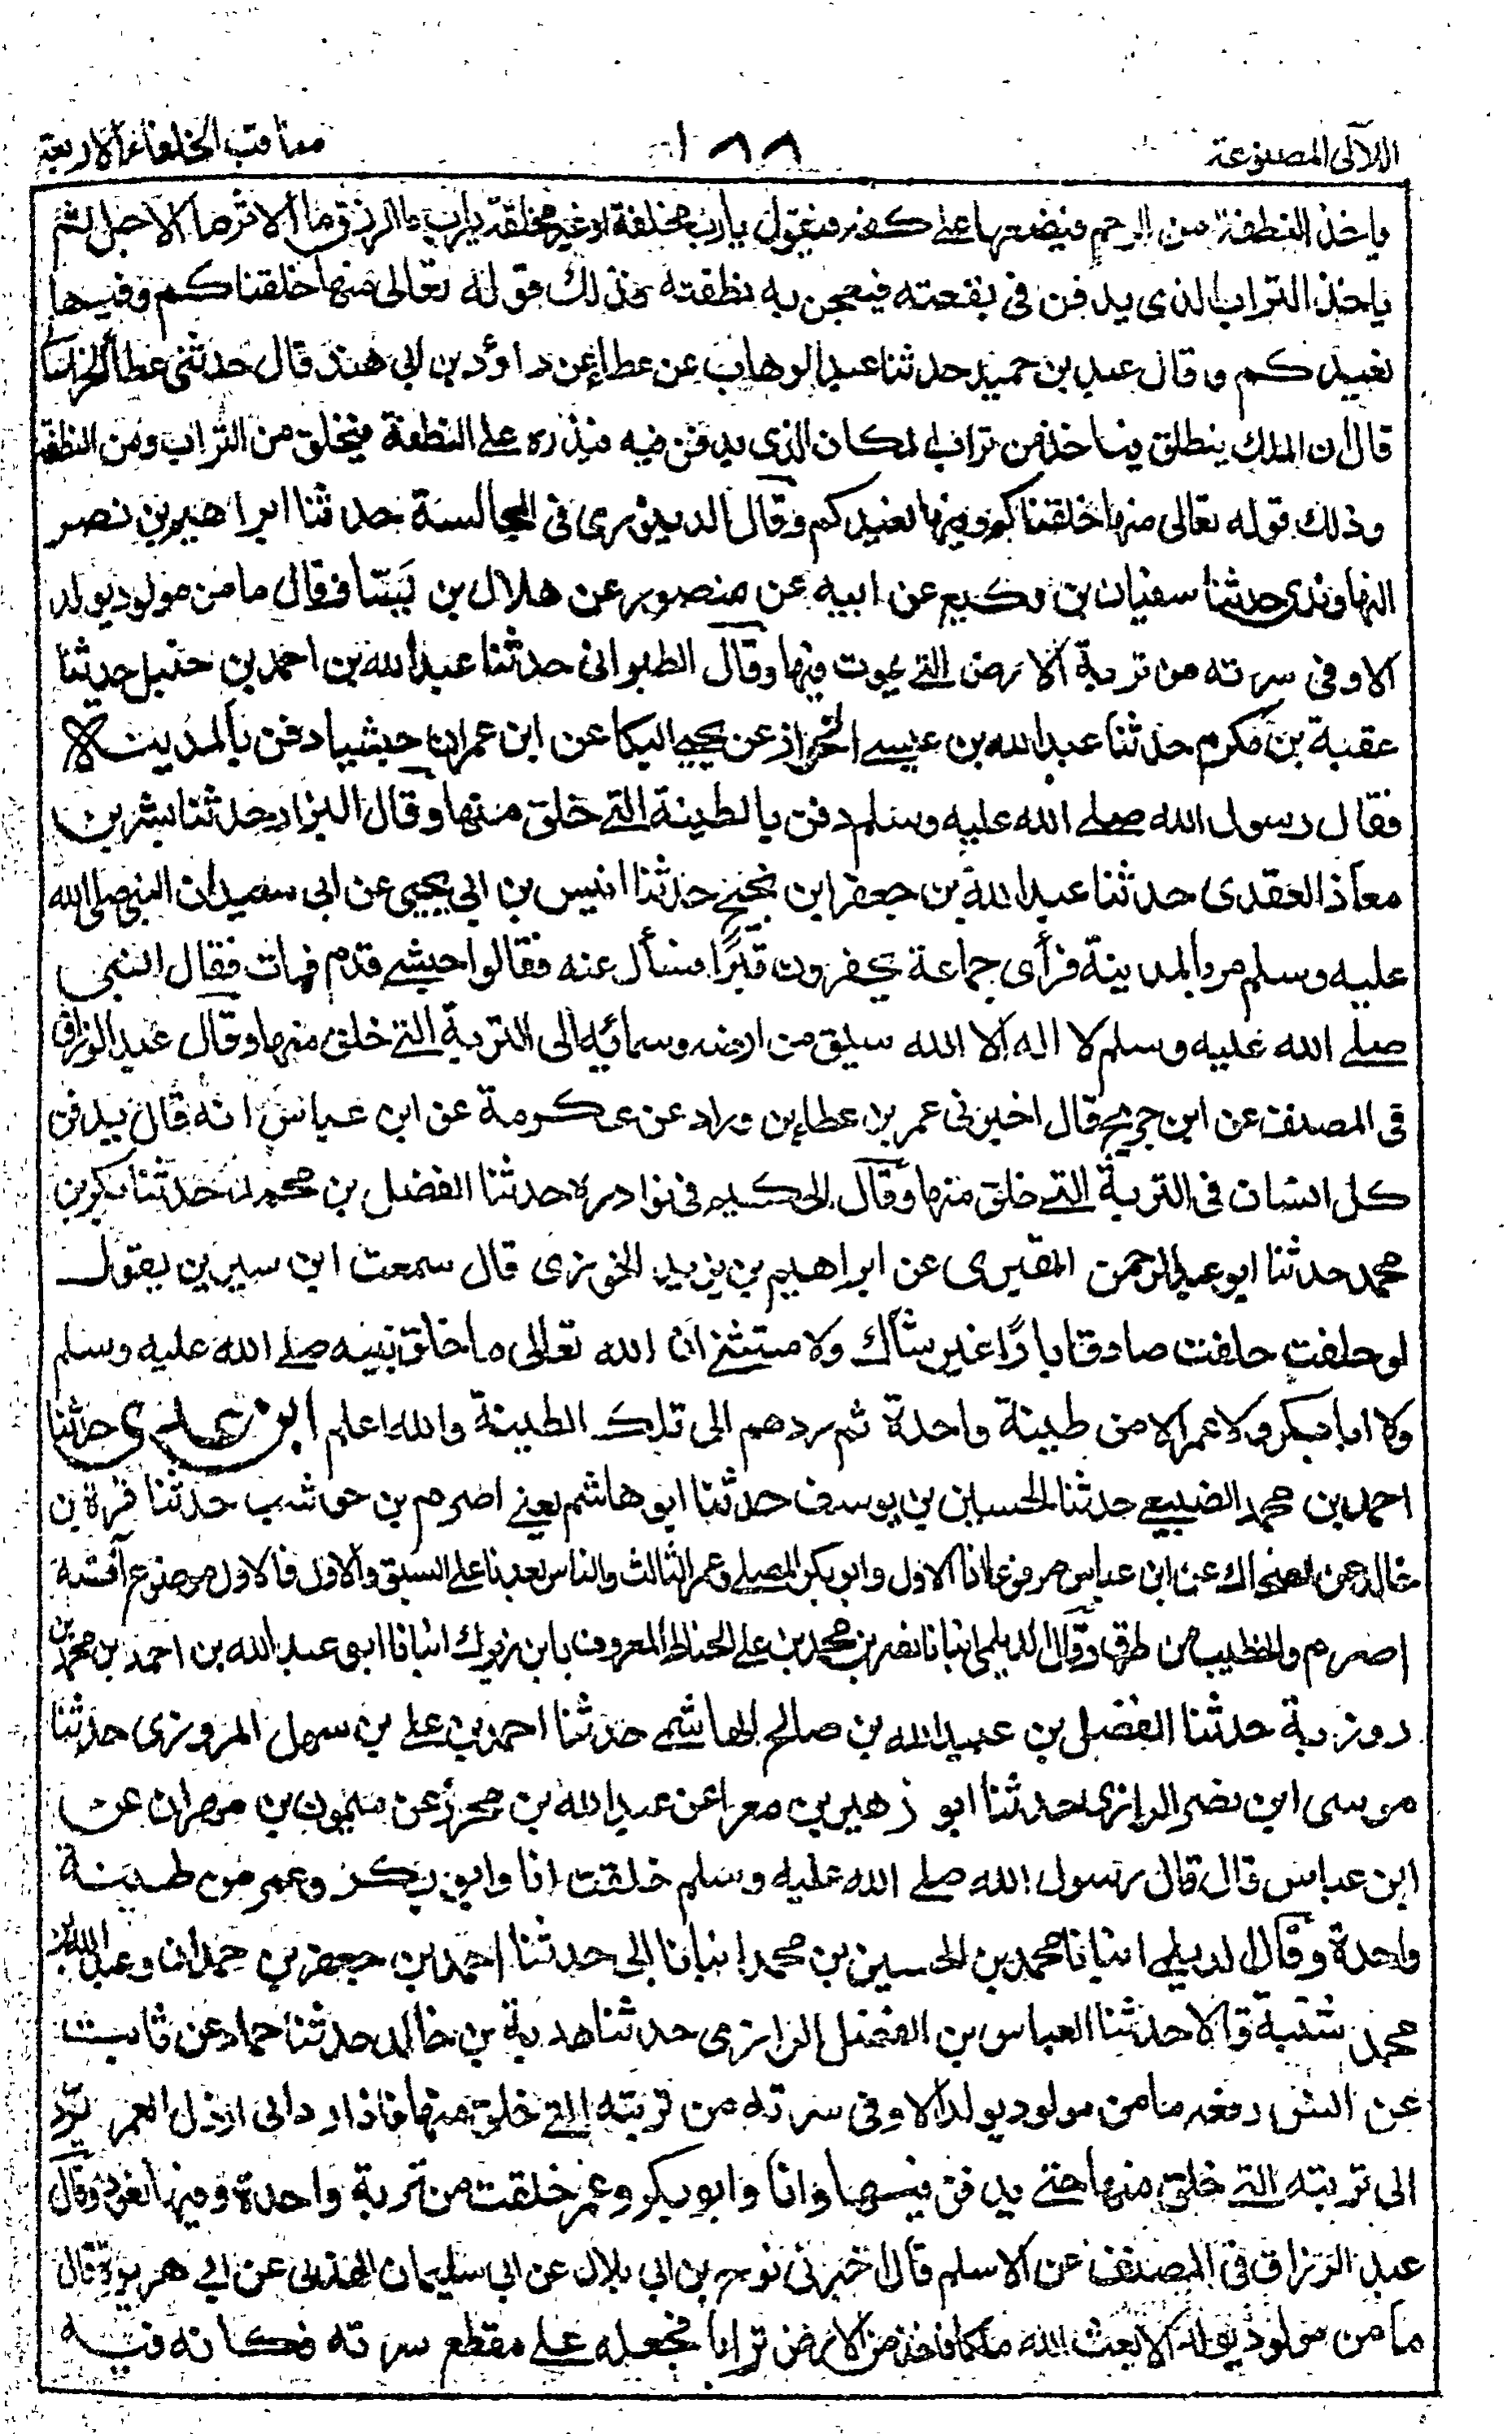 اللآلى المصنوعة ١٨٨ مناقب الخلفاء الاربعة
ياخذ النطفة من الرحم فيضعها على كفه فيقول يارب مخلقة او غير مخلقة يارب ما الرزق ما الاثر ما الاجل ثم
ياخذ التراب الذى يدفن فى بقعته فيعجن به نطفته فذلك قوله تعالى منها خلقناكم وفيها
نعيدكم وقال عبد بن حميد حدثنا عبد الوهاب عن عطاء عن داؤد بن ابى هند قال حدثنى عطا الخراسا
قال ان الملك ينطلق فياخذ من تراب المكان الذى يدفن فيه فيذره على النطفة فيخلق من التراب ومن النطفة
وذلك قوله تعالى منها خلقناكم وفيها نعيدكم وقال الدينورى فى المجالسة حدثنا ابراهيم بن نصر
النهاوندى حدثنا سفيان بن وكيع عن ابيه عن منصور عن هلال بن يسا فقال ما من مولود يولد
الا وفى سرته من تربة الارض التى يموت فيها وقال الطبرانى حدثنا عبد الله بن احمد بن حنبل حديثنا
عقبة بن مكرم حدثنا عبد الله بن عيسى الخزاز عن يحيى البكا عن ابن عمر ان حبشيا دفن بالمدينة
فقال رسول الله صلى الله عليه وسلم دفن بالطينة التى خلق منها وقال البزار حدثنا بشر بن
معاذ العقدى حدثنا عبد الله بن جعفر ابن نجيح حدثنا انيس بن ابى يحيى عن ابى سعيد ان النبى صلى الله
عليه وسلم مر بالمدينة فرأى جماعة يحفرون قبرًا فسأل عنه فقالوا حبشى قدم فمات فقال النبى
صلى الله عليه وسلم لا اله الا الله سيق من ارضه وسمائه الى التربة التى خلق منها وقال عبد الرزاق
فى المصنف عن ابن جريج قال اخبرنى عمر بن عطاء بن وراد عن عكرمة عن ابن عباس انه قال يدفن
كل انسان فى التربة التى خلق منها وقال الحكيم فى نوادره حدثنا الفضل بن محمد حدثنا بكر بن
محمد حدثنا ابو عبد الرحمن المقبرى عن ابراهيم بن يزيد الخوزى قال سمعت ابن سيرين يقول
لو حلفت حلفت صادقا بارًا غير شاك ولا مستثنى ان الله تعالى ما خلق نبيه صلى الله عليه وسلم
ولا ابا بكر ولا عمر الا من طينة واحدة ثم ردهم الى تلك الطينة والله اعلم ابن عدى حدثنا
احمد بن محمد الضبيعى حدثنا الحسين بن يوسف حدثنا ابو هاشم يعنى اصرم بن حوشب حدثنا قرة بن
خالد عن الضحاك عن ابن عباس مرفوعا انا الاول وابو بكر المصلى وعمر الثالث والناس بعدنا على السبق والاول فالاول موضوع آفته
اصرم والخطيب من طرق وقال الديلمى انبانا نصر بن محمد بن على الخياط المعروف بابن زيرك انبانا ابى عبد الله بن احمد بن محمد بن
روزبة حدثنا الفضل بن عبيد الله بن صالح الهاشمى حدثنا احمد بن على بن سهل المروزى حدثنا
موسى ابن نصر الرازى حدثنا ابو زهير بن معرا عن عبد الله بن محرز عن ميمون بن مهران عن
ابن عباس قال قال رسول الله صلى الله عليه وسلم خلقت انا وابو بكر وعمر من طينة
واحدة وقال الديلمى انبانا محمد بن الحسين بن محمد انبانا ابى حدثنا احمد بن جعفر بن حمدان وعبد الله بن
محمد شنبة قالا حدثنا العباس بن الفضل الرازى حدثنا هدبة بن خالد حدثنا حماد عن ثابت
عن انس رفعه ما من مولود يولد الا وفى سرته من تربته التى خلق منها فاذا رد الى ارذل العمر رد
الى تربته التى خلق منها حتى يدفن فيها وانا وابو بكر وعمر خلقت من تربة واحدة وفيها نعود وقال
عبد الرزاق فى المصنف عن الاسلم قال اخبرنى نوح بن ابى بلال عن ابى سليمان الهذلى عن ابى هريرة قال
ما من مولود يولد الا بعث الله ملكا فاخذ من الارض ترابا فجعله على مقطع سرته فكانه فيه